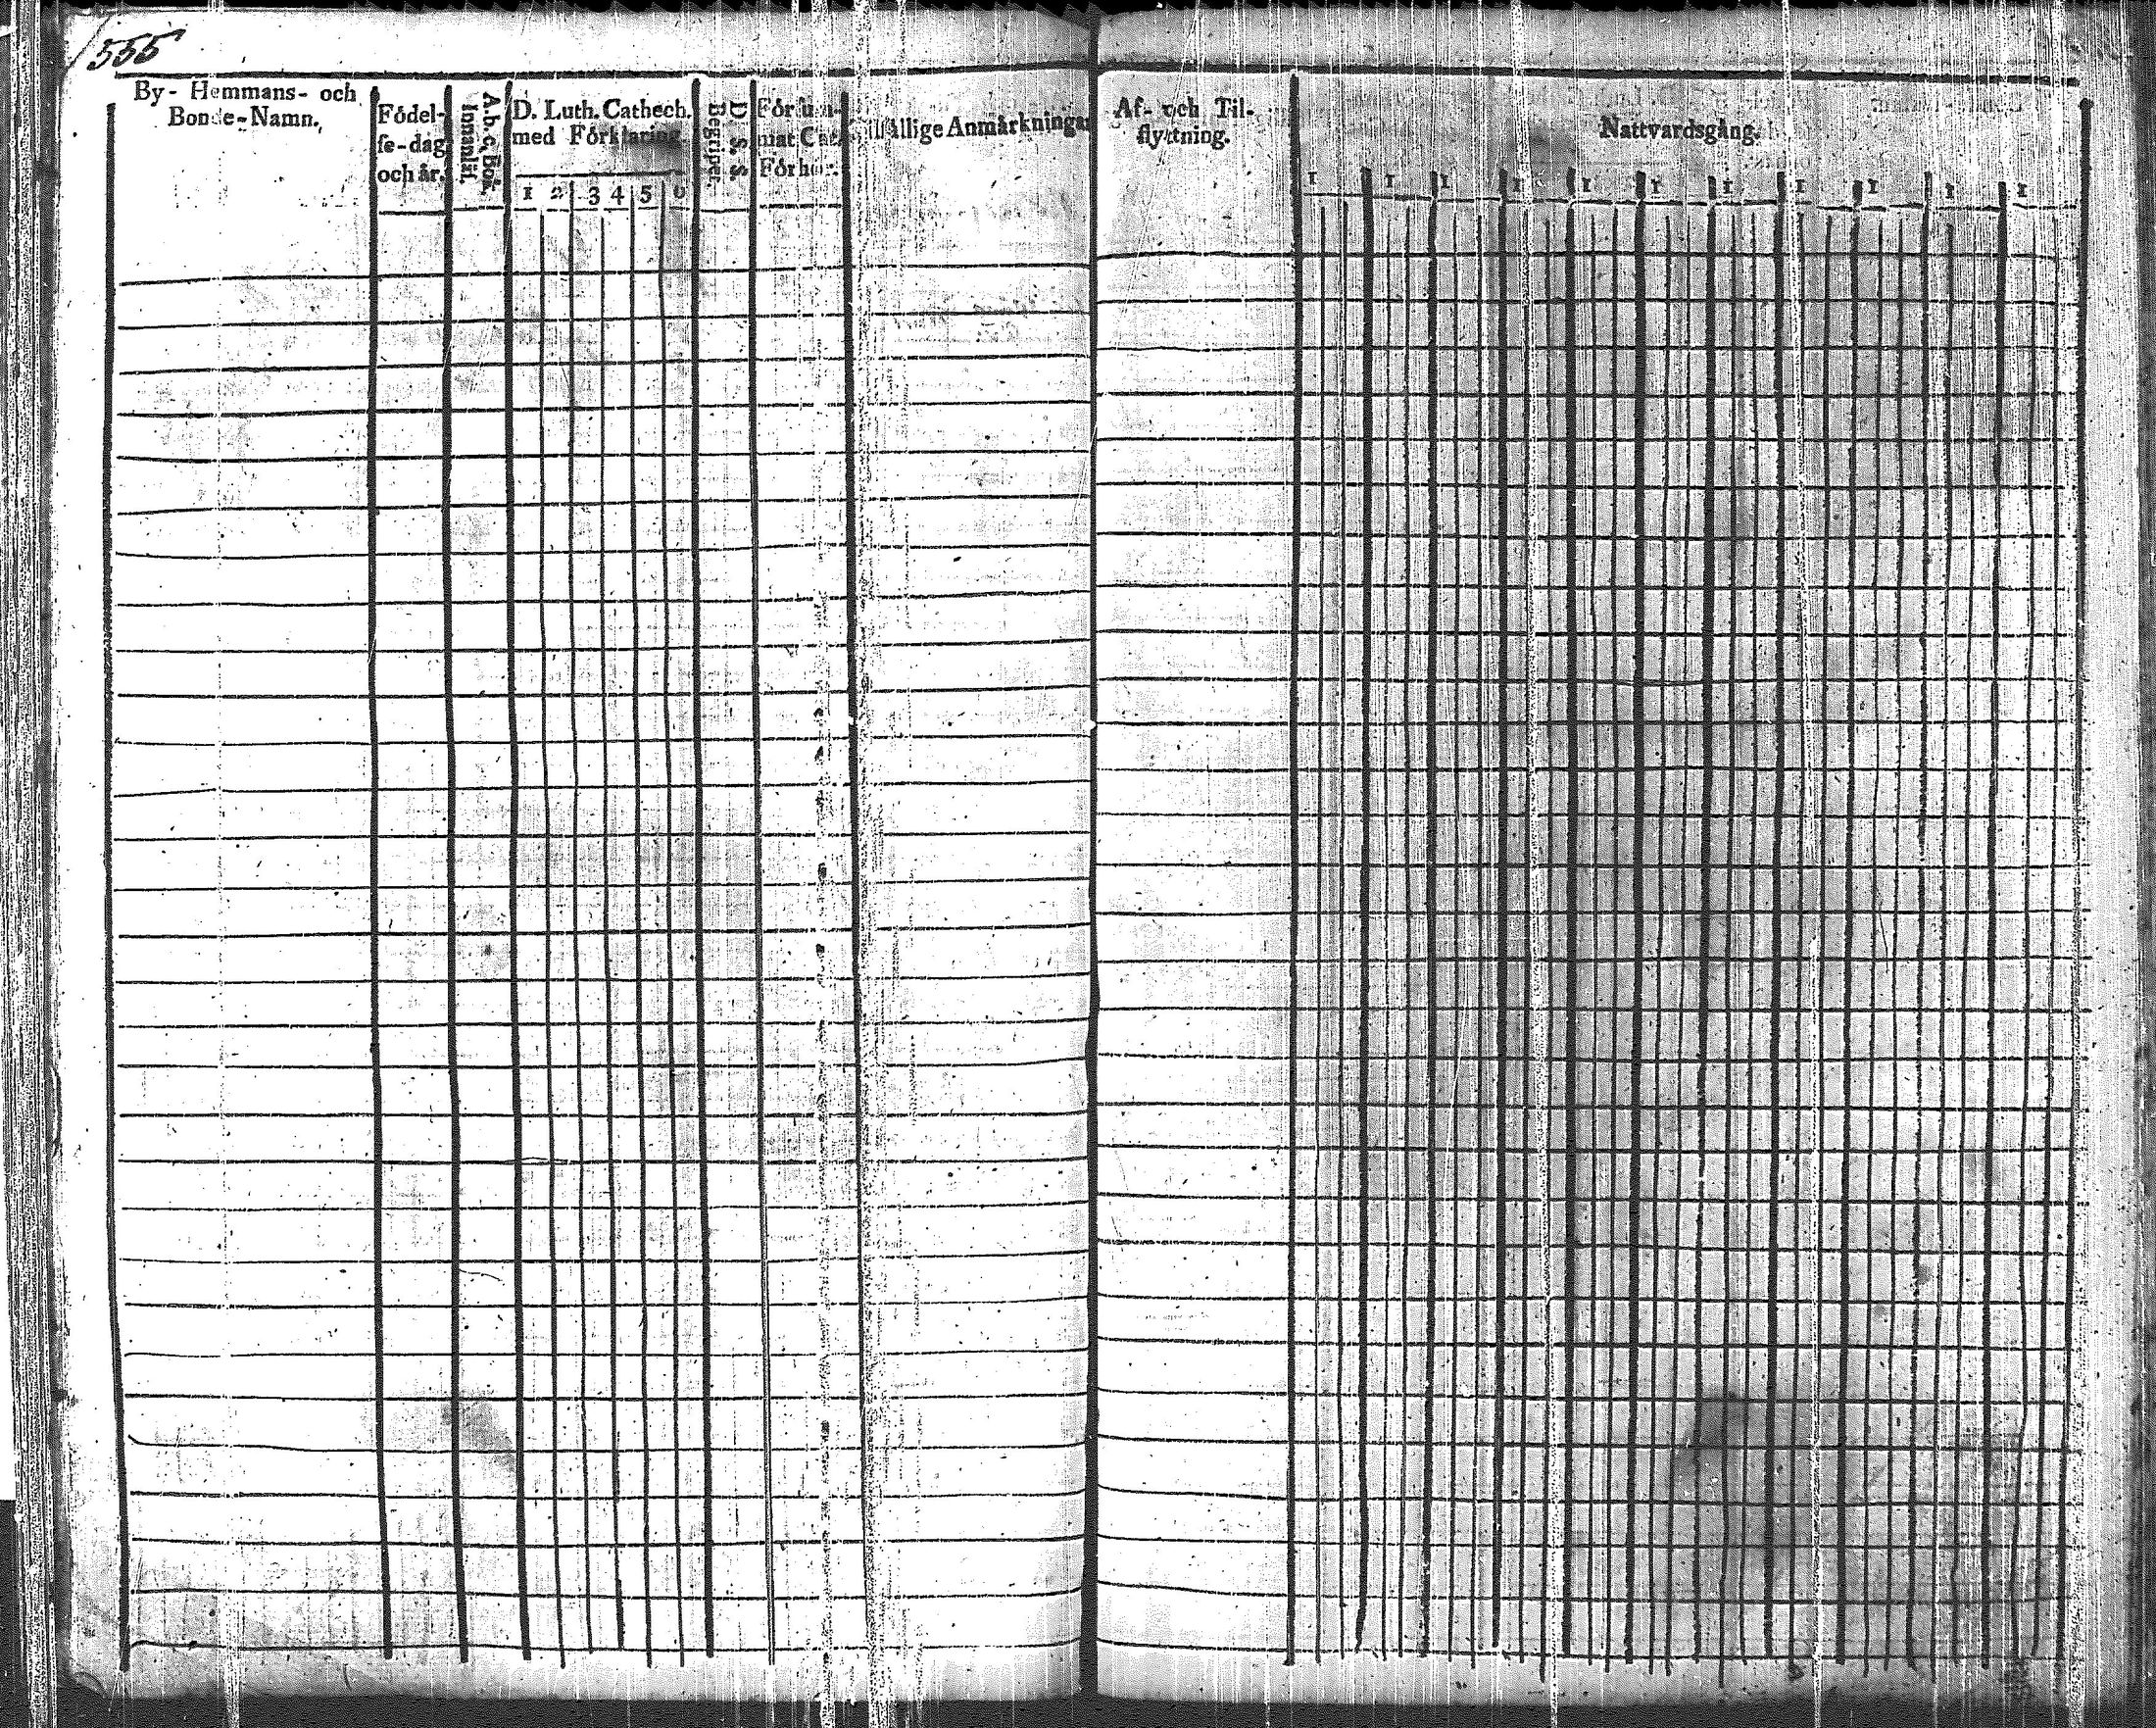 555
By- Hemmans- och
Bonde-Namn.
Födel-
se-dag
och år.
A.b.c. Bok.
Innanläs.
D. Luth. Cathech.
med Förklaring.
1 2 3 4 5 6
D. S. S.
Begriper.
Försum-
mat Cat.
Förhör.
Tilfällige Anmärkningar
Af- och Til-
flyttning.
Nattvardsgång.
1 1 1 1 1 1 1 1 1 1 1